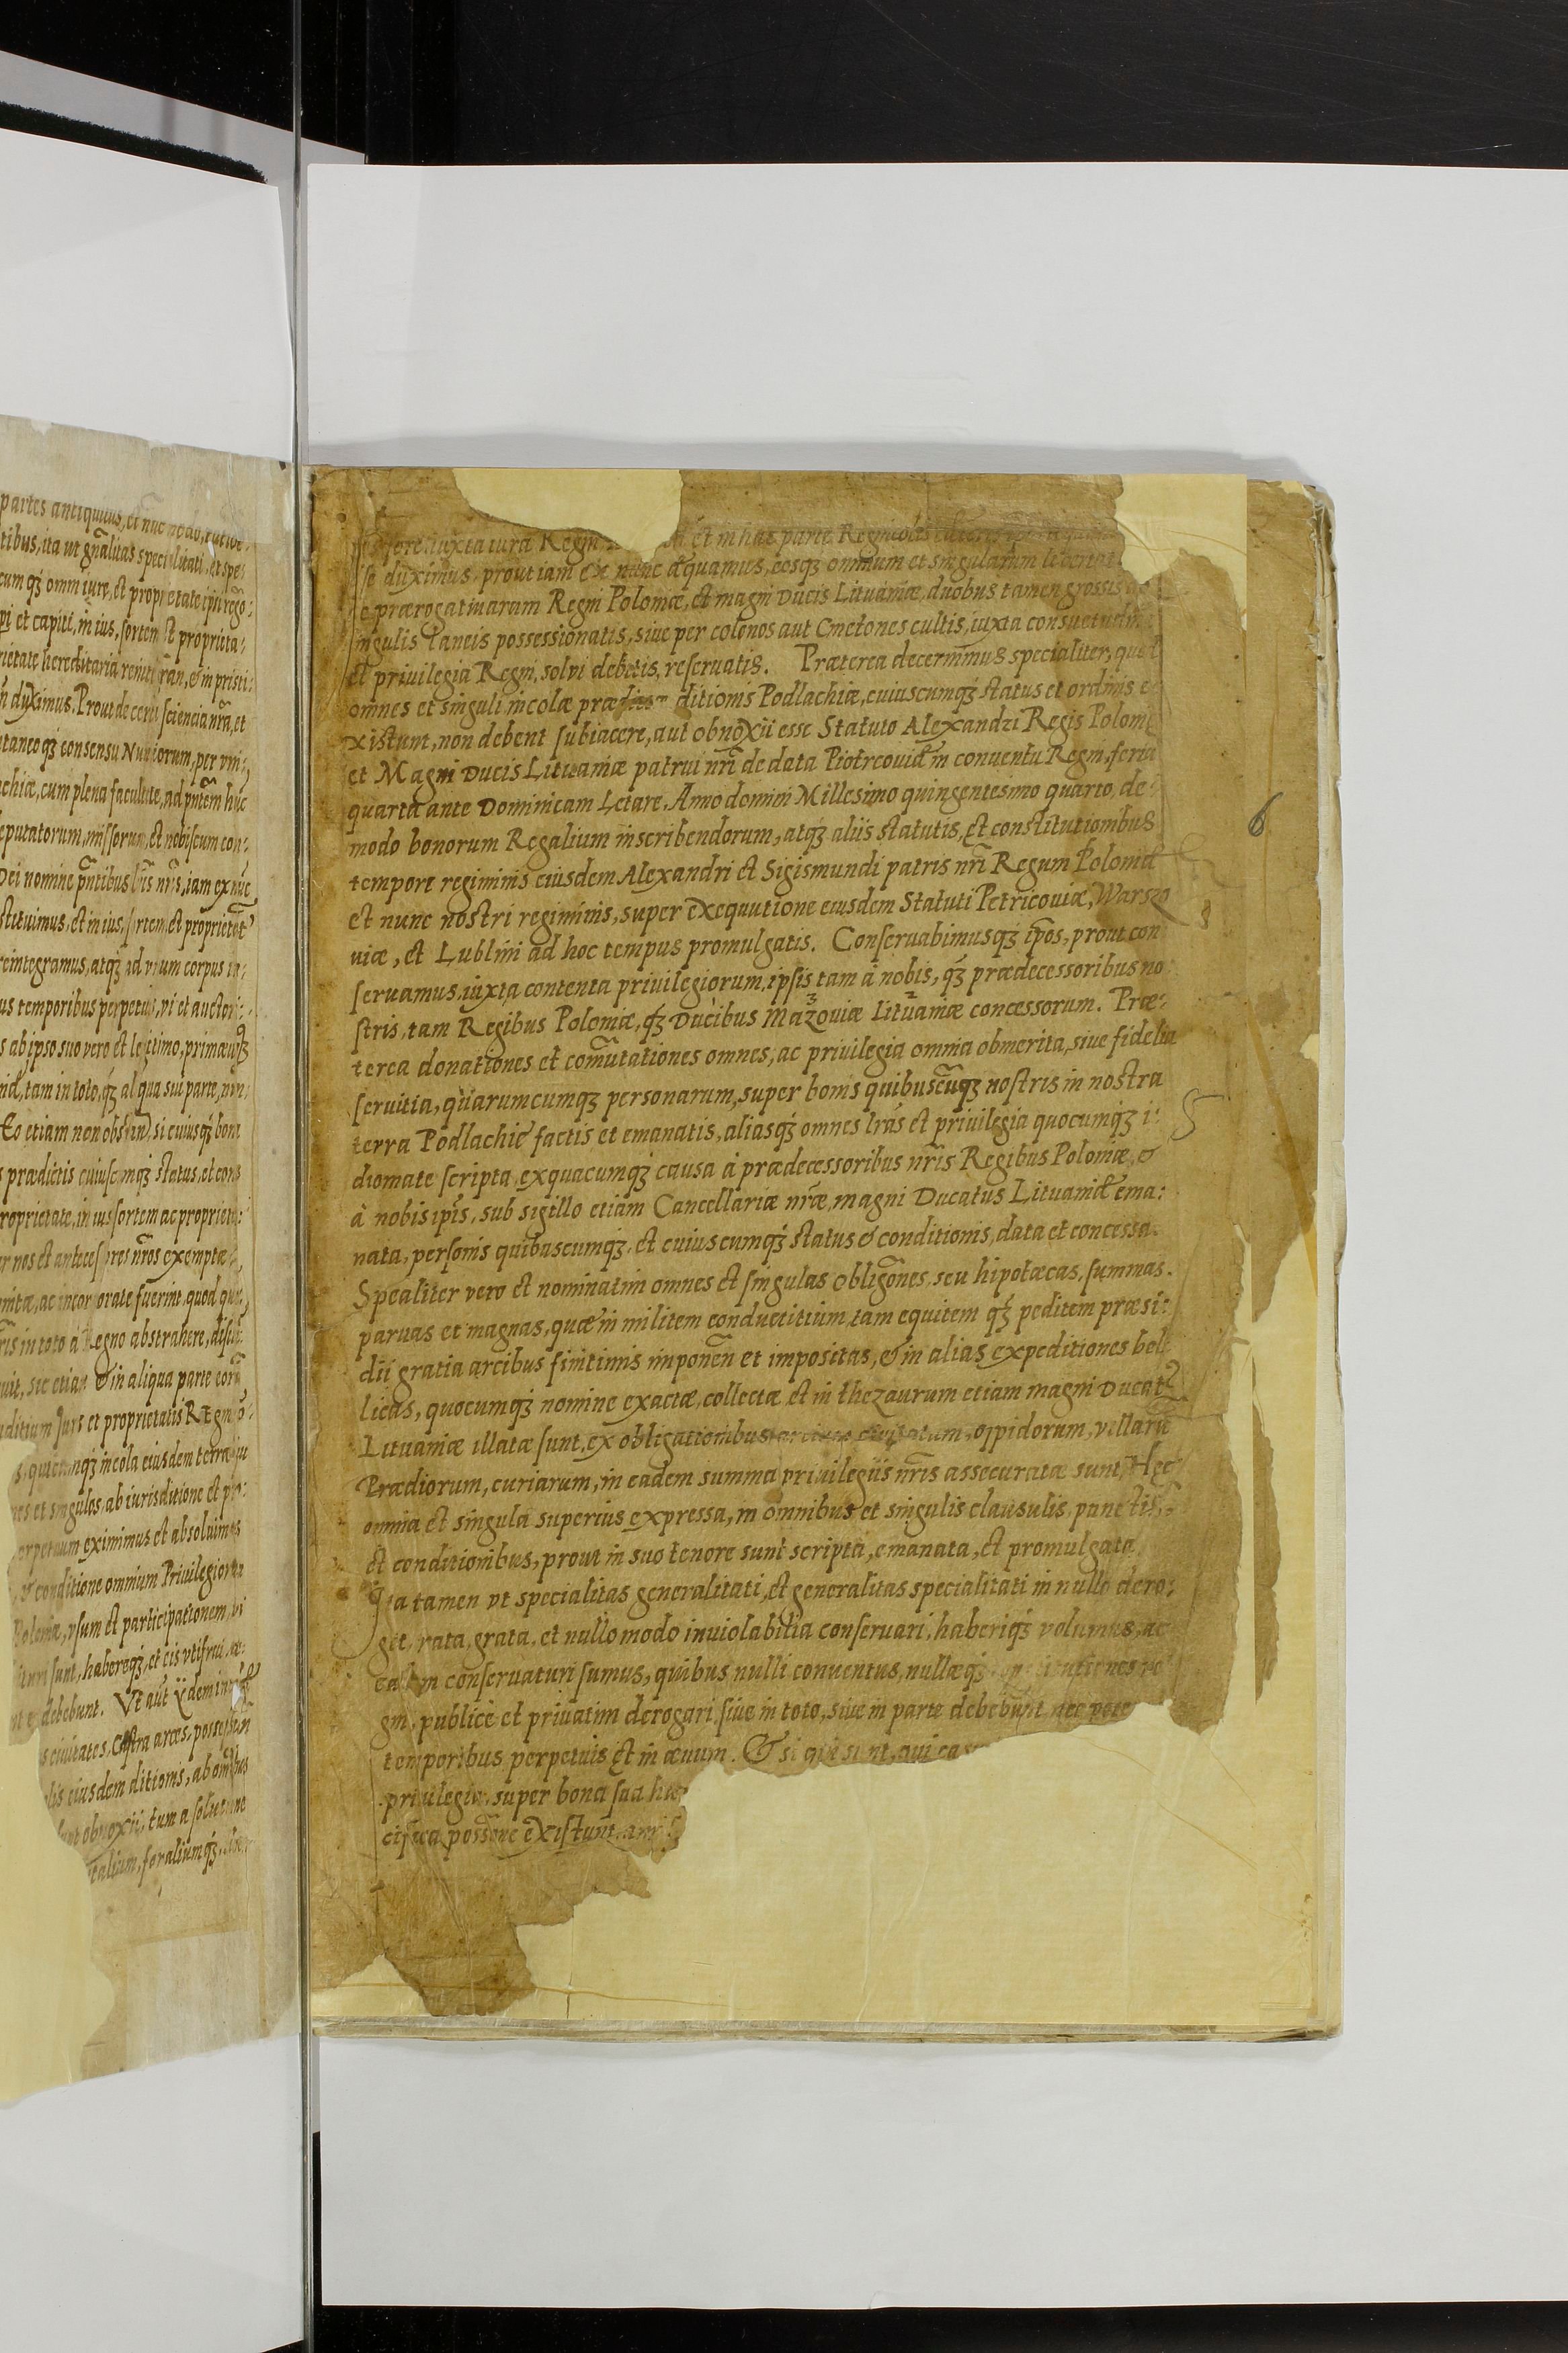 partes antiquitus, et nūc
tibus, ita ut gn̄alitas specialitati, et spe:
cum qꝫ omni iure, et proprietate
pi et capiti, in ius, sortem et proprieta:
rietate hereditaria
dūximus. Prout de certa sciencia nrā, et
taneoqꝫ consensu Nuntiorum, per
achiæ, cum plena facultate, ad pn̄tem huc
eputatorum, missorum, et nobiscum con:
Dei nomine pn̄tibus lr̄is nr̄is, iam ex nūc
stituimus, et in ius, sortem, et proprietat
reintegramus, atqꝫ ad vnum corpus
us temporibus perpetuis, vi et auctori:
s ab ipso suo vero et legitimo, primævoqꝫ
tam in toto, qꝫ aliqua sui parte,
Eo etiam non obstan̄, si cuiusqꝫ bona
s prædictis cuiuscumqꝫ status, et cons
roprietate, in ius sortem ac proprieta:
er nos et antecessores nr̄os exemptæ
ac incorporatæ fuerint, quod
in toto à Regno abstrahere,
uit, sic etiam & in aliqua parte
Juris et proprietatis Regni
incola eiusdem terræ
res et singulos, ab iurisditione et
erpetuum eximimus et absoluimus
& conditione omnium Priuilegiorum
Poloniæ, vsum et participationem,
sunt, haberegꝫ, et eis vtifrui,
debebunt. Vt aūt ijdem
s ciuitates, castra arces, possessiones
eiusdem ditionis, ab omībus
obnoxii, tum a solutione
foraliumqꝫ,
iuxta iura Regni et in hac parte Regnicolis
se duximus, prout iam ex nunc æquamus, eosqꝫ omnium et singularum libertat
prærogatiuarum Regni Poloniæ, et magni Ducis Lituaniæ, duobus tamen grossis
singulis Laneis possessionatis, siue per colonos aut Cmetones cultis, iuxta consuetudin
et priuilegia Regni, solui debetis, reseruatis. Præterea decernimus specialiter, quod
omnes et singuli incolæ ditionis Podlachiæ, cuiuscumqꝫ status et ordinis e
xistunt, non debent subiacere, aut obnoxii esse Statuto Alexandri Regis Polonię
et Magni Ducis Lituaniæ patrui nrī de data Piotrcouiæ in conuentu Regni, feria
quarta ante Dominicam Letare, Anno domini Millesimo quingentesimo quarto, de
modo bonorum Regalium inscribendorum, atqꝫ aliis statutis, et constitutionibus
tempore regiminis eiusdem Alexandri et Sigismundi patris nrī Regum Poloniæ
et nunc nostri regiminis, super exequutione eiusdem Statuti Petricouiæ, Warszo
uiæ, et Lublini ad hoc tempus promulgatis. Conseruabimusqꝫ ip̄os, prout con
seruamus, iuxta contenta priuilegiorum, ipsis tam à nobis, qꝫ prædecessoribus no
stris, tam Regibus Poloniæ, qꝫ Ducibus Mazouiæ Lituaniæ concessorum. Præ:
terea donationes et com̄utationes omnes, ac priuilegia omnia obmerita, siue fidelia
seruitia, quarumcumqꝫ personarum, super bonis quibuscūqꝫ nostris in nostra
terra Podlachie factis et emanatis, aliasqꝫ omnes lr̄as et priuilegia quocumqꝫ i:
diomate scripta, exquacumqꝫ causa à prædecessoribus nr̄is Regibus Poloniæ, &
à nobis ip̄is, sub sigillo etiam Cancellariæ nrǣ, magni Ducatus Lituaniæ ema:
nata, personis quibuscumqꝫ, et cuiuscumqꝫ status & conditionis, data et concessa.
Spealiter vero et nominatim omnes et singulas obligōnes, seu hipotæcas, summas.
paruas et magnas, quæ in militem conductitium, tam equitem qꝫ peditem præsi:
dii gratia arcibus finitimis imponen̄ et impositas, & in alias expeditiones bel
licas, quocumqꝫ nomine exactæ, collectæ et in thezaurum etiam magni Ducat
Lituaniæ illatæ sunt, ex obligationibus oppidorum, villarū
Prædiorum, curiarum, in eadem summa priuilegiis nr̄is assecuratæ sunt, Hęc
omnia et singula superius expressa, in omnibus et singulis clausulis, punctis,
et conditionibus, prout in suo tenore sunt scripta, emanata, et promulgata
Ita tamen vt specialitas generalitati, et generalitas specialitati in nullo dero:
get, rata, grata, et nullo modo inuiolabilia conseruari, haberiqꝫ volumus, ac
conseruaturi sumus, quibus nulli conuentus, nullæqꝫ
gni, publice et priuatim derogari siue in toto, siue in parte debebunt nec
temporibus perpetuis et in æuum. & si qui sunt, qui
priuilegia, super bona sua
possōne existunt
6
5